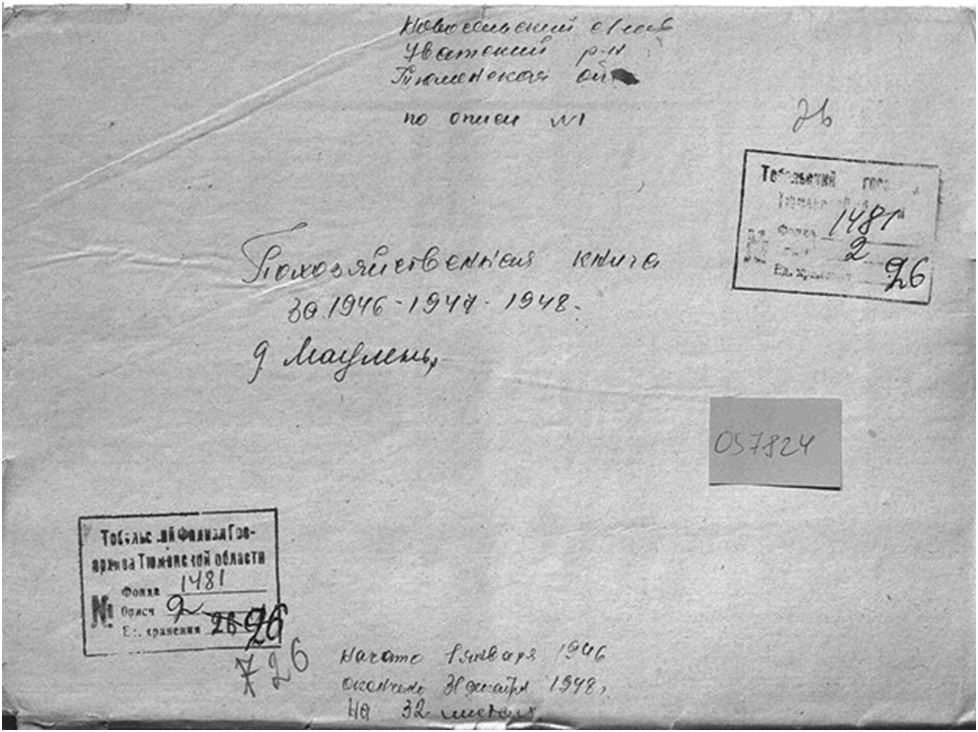 Новосельский с/сов
Уватский р-н
Тюменской об
по описи №1
26
Тобольский гос
Тюменской
Фонда 1481
2
Ед. хранения 26
Похозяйственная книга
за 1946-1947-1948.
д Маулень,
057824
Тобольский Филиал Гос-
архива Тюменской области
№ Фонда 1481
Описи 2
Ед. хранения 26 26
726
Начато 1 января 1946
окончено 31 декабря 1948г
На 32 листах